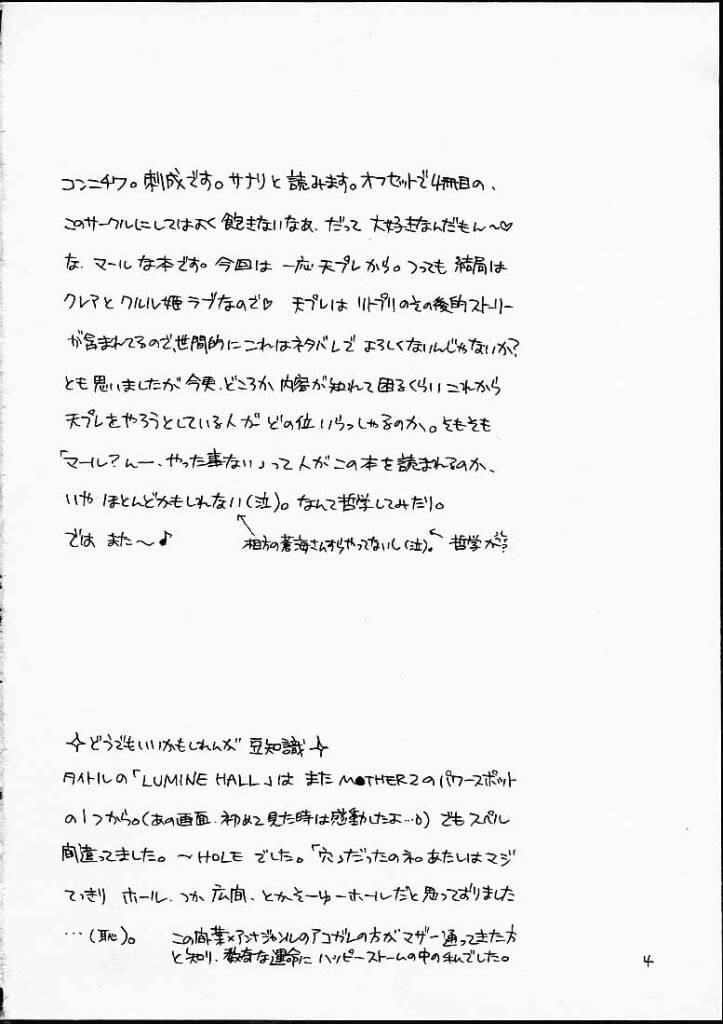 コンニチワ。刺成です。サナリと読みます。オフセットで4冊目の、
このサークルにしてはよく飽きないなあ、だって大好きなんだもん〜♡
な、マールな本です。今回は一応天プレから。つっても結局は
クレアとクルル姫ラブなので♡ 天プレはリトプリのその後的ストーリー
が含まれてるので、世間的にこれはネタバレでよろしくないんじゃないか?
とも思いましたが今更、どころか内容が知れて困るくらいこれから
天プレをやろうとしている人がどの位いらっしゃるのか。そもそも
「マール?んー、やった事ない」って人がこの本を読まれるのか、
いやほとんどかもしれない(泣)。なんて哲学してみたり。
ではまた〜♪
相方の蒼海さんすらやってないし(泣)。 哲学か?
どうでもいいかもしれんが 豆知識
タイトルの「LUMINE HALL」はまたMOTHER2のパワースポット
の1つから。(あの画面、初めて見た時は感動したよ…) でもスペル
間違ってました。〜HOLEでした。「穴」だったのネ。あたしはマジ
てっきりホール、つか広間、とかそーゆーホールだと思っておりました
…(恥)。
この間葉×アンナジャンルのアコガレの方がマザー通ってきた方
と知り、数奇な運命にハッピーストームの中の私でした。
4